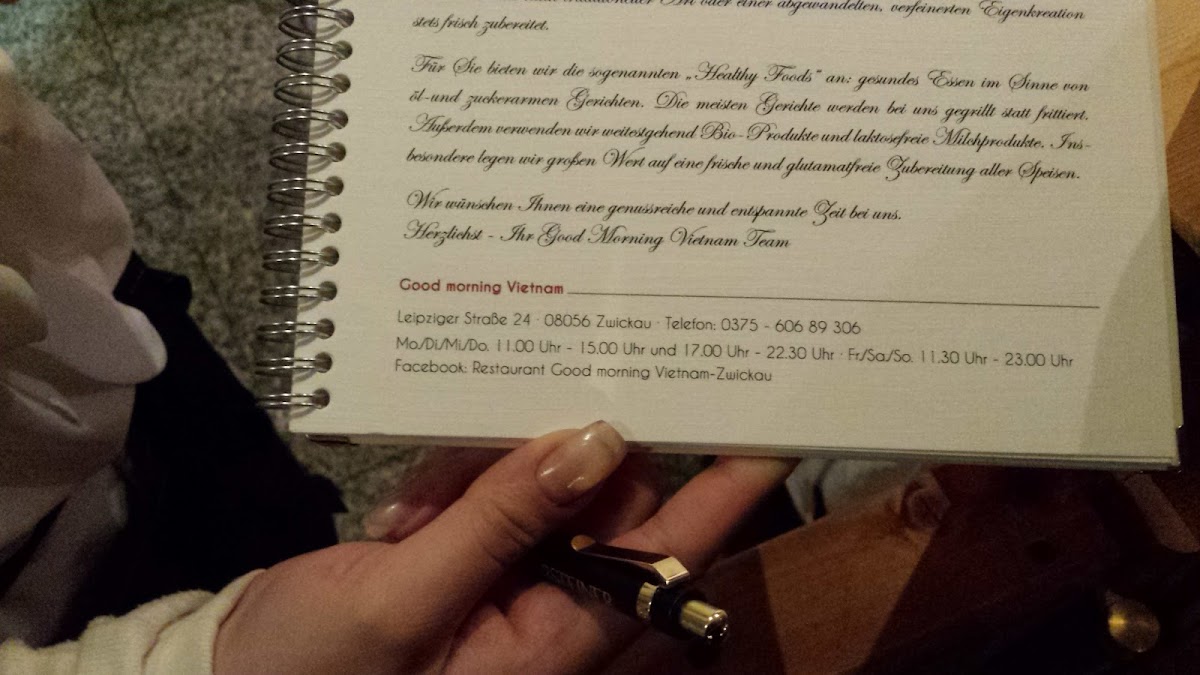 oder einer abgewandelten, verfeinerten Eigenkreation
stets frisch zubereitet.
Für Sie bieten wir die sogenannten „Healthy Foods“ an: gesundes Essen im Sinne von
öl-und zuckerarmen Gerichten. Die meisten Gerichte werden bei uns gegrillt statt frittiert.
Außerdem verwenden wir weitestgehend Bio-Produkte und laktosefreie Milchprodukte. Ins-
besondere legen wir großen Wert auf eine frische und glutamatfreie Zubereitung aller Speisen.
Wir wünschen Ihnen eine genussreiche und entspannte Zeit bei uns.
Herzlichst - Ihr Good Morning Vietnam Team
Good morning Vietnam
Leipziger Straße 24 · 08056 Zwickau · Telefon: 0375 - 606 89 306
Mo/Di/Mi/Do. 11.00 Uhr - 15.00 Uhr und 17.00 Uhr - 22.30 Uhr · Fr/Sa/So. 11.30 Uhr - 23.00 Uhr
Facebook: Restaurant Good morning Vietnam-Zwickau